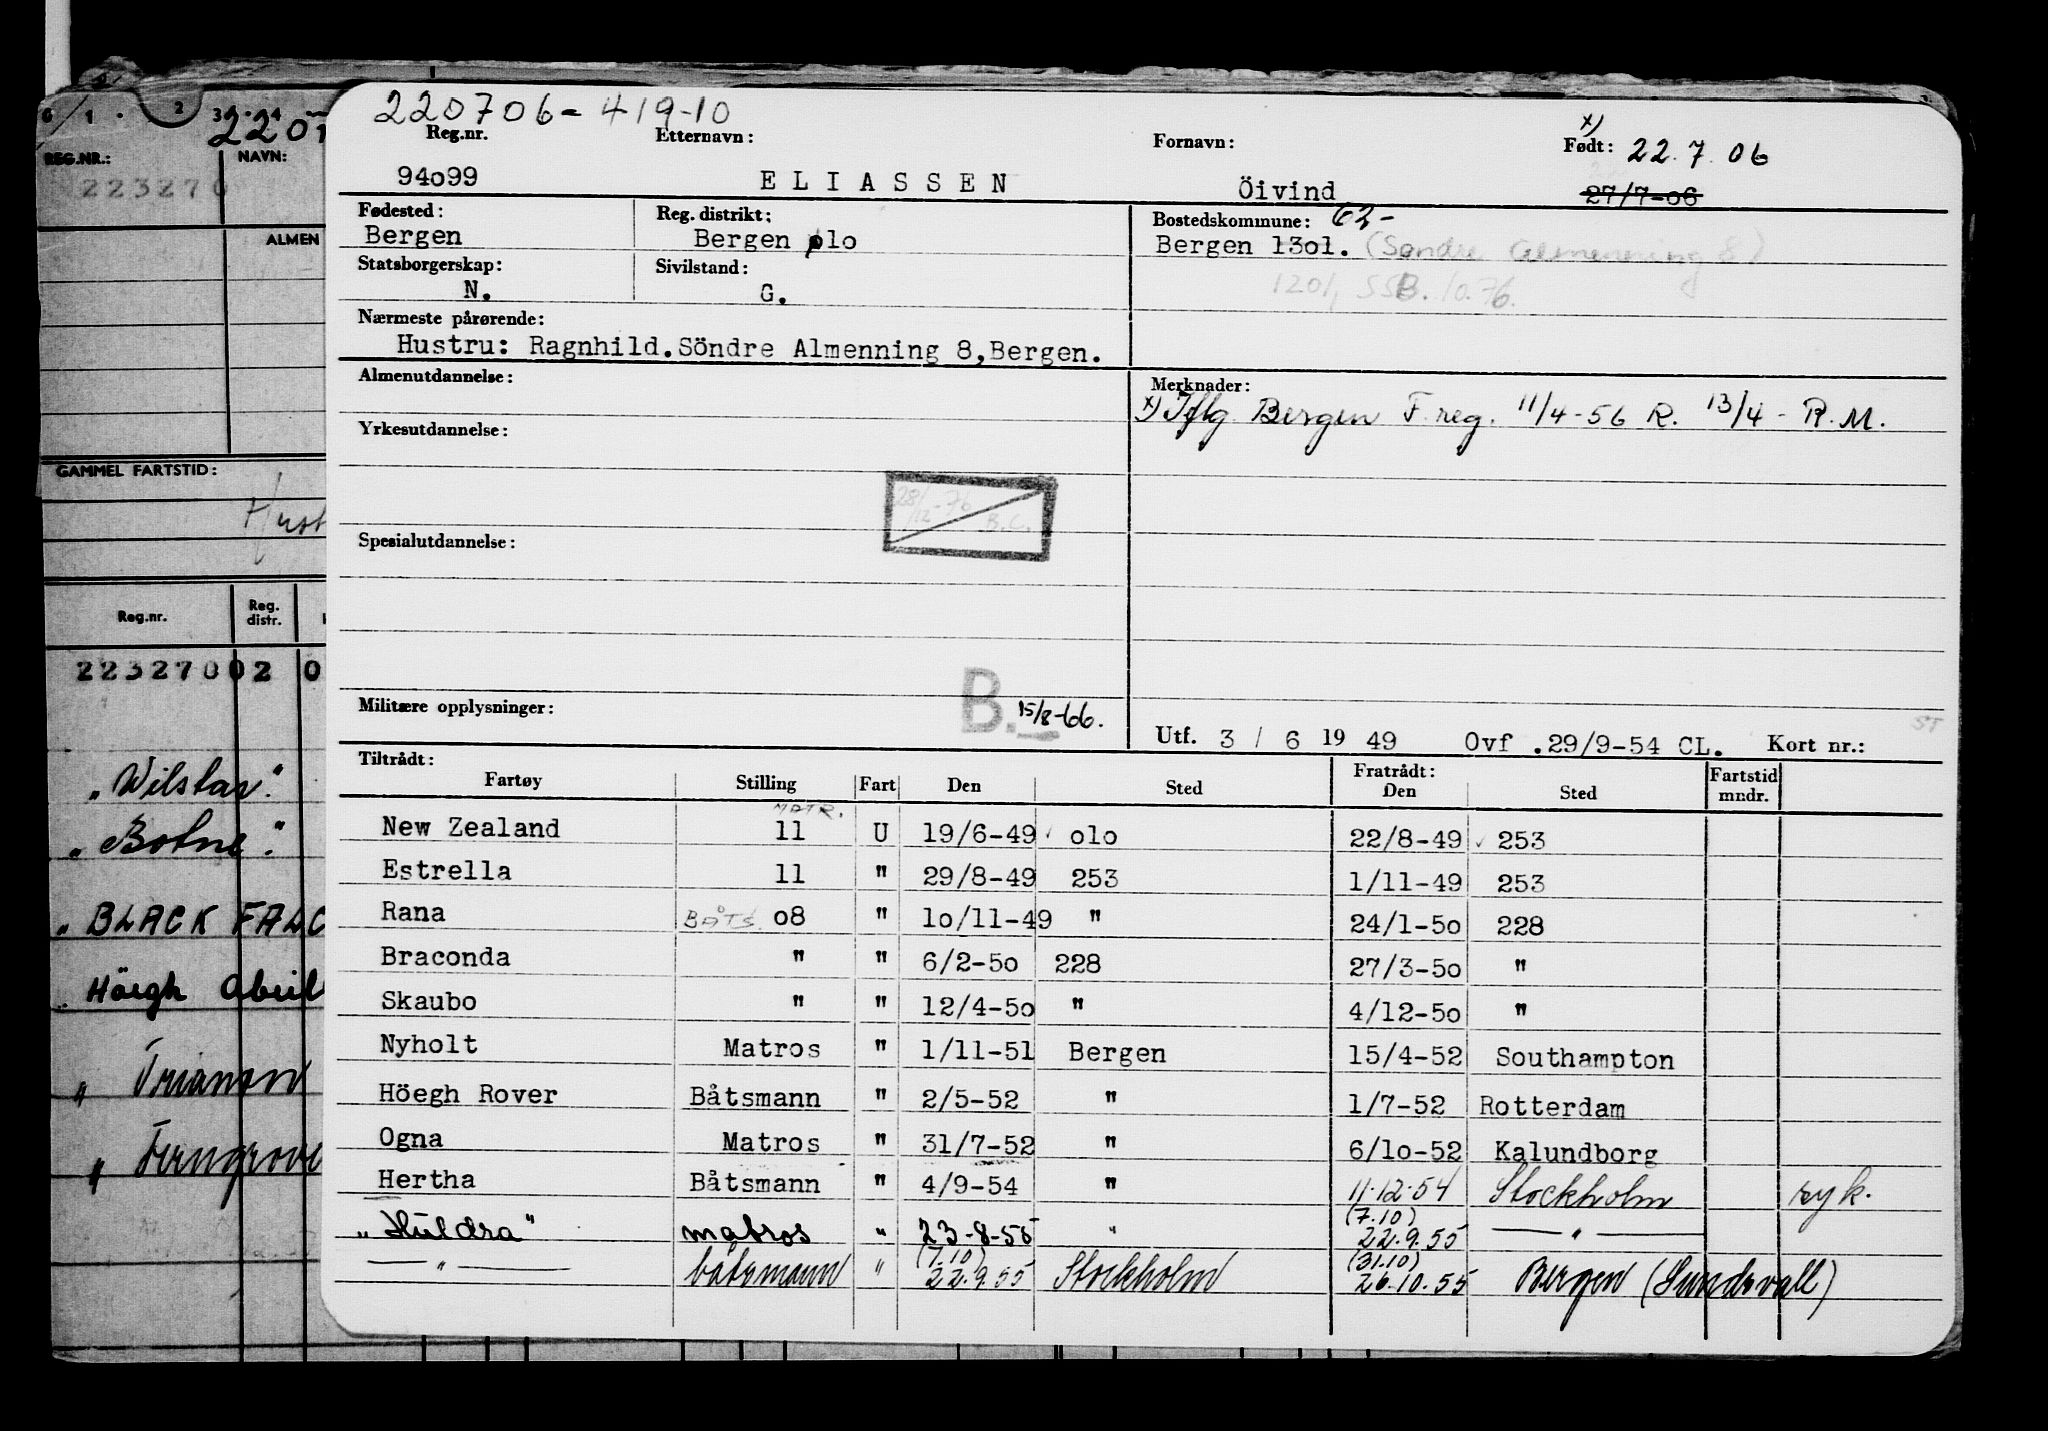 220706-419-10
Reg.nr. Etternavn: Fornavn: x) Født: 22.7.06
94o99 ELIASSEN Öivind 27/7-o6
Fødested: Reg. distrikt: Bostedskommune: 62-
Bergen Bergen olo Bergen 13o1. (Søndre Almenning 8)
Statsborgerskap: Sivilstand: 1201, SSB. 10.76.
N. G.
Nærmeste pårørende:
Hustru: Ragnhild.Söndre Almenning 8,Bergen.
Almenutdannelse: Merknader:
x) Iflg. Bergen F. reg. 11/4-56 R. 13/4 - R.M.
Yrkesutdannelse:
28/12-76 B.C.
Spesialutdannelse:
Militære opplysninger: B. 15/8-66.
Utf. 3 / 6 19 49 Ovf .29/9-54 CL. Kort nr.: ST
Tiltrådt: Fratrådt: Fartstid
Fartøy Stilling Fart Den Sted Den Sted mndr.
MATR.
New Zealand 11 U 19/6-49 olo 22/8-49 253
Estrella 11 " 29/8-49 253 1/11-49 253
Rana BÅTS. o8 " 1o/11-49 " 24/1-5o 228
Braconda " " 6/2-5o 228 27/3-5o "
Skaubo " " 12/4-5o " 4/12-5o "
Nyholt Matros " 1/11-51 Bergen 15/4-52 Southampton
Höegh Rover Båtsmann " 2/5-52 " 1/7-52 Rotterdam
Ogna Matros " 31/7-52 " 6/1o-52 Kalundborg
Hertha Båtsmann " 4/9-54 " 11.12.54 Stockholm syk.
"Huldra" matros " 23-8-55 " (7.10) 22.9.55 — " —
— " — båtsmann " (7.10) 22.9.55 Stockholm (31.10) 26.10.55 Bergen (Sundsvall)
6 1 . 2 3 4
2207
REG.NR.: NAVN:
223270
ALMEN
GAMMEL FARTSTID:
Hust
Reg.nr. Reg. distr.
22327002 0
"Wilstar"
"Botne"
"BLACK FALC
Höegh
" Trianon
" Ferngrove